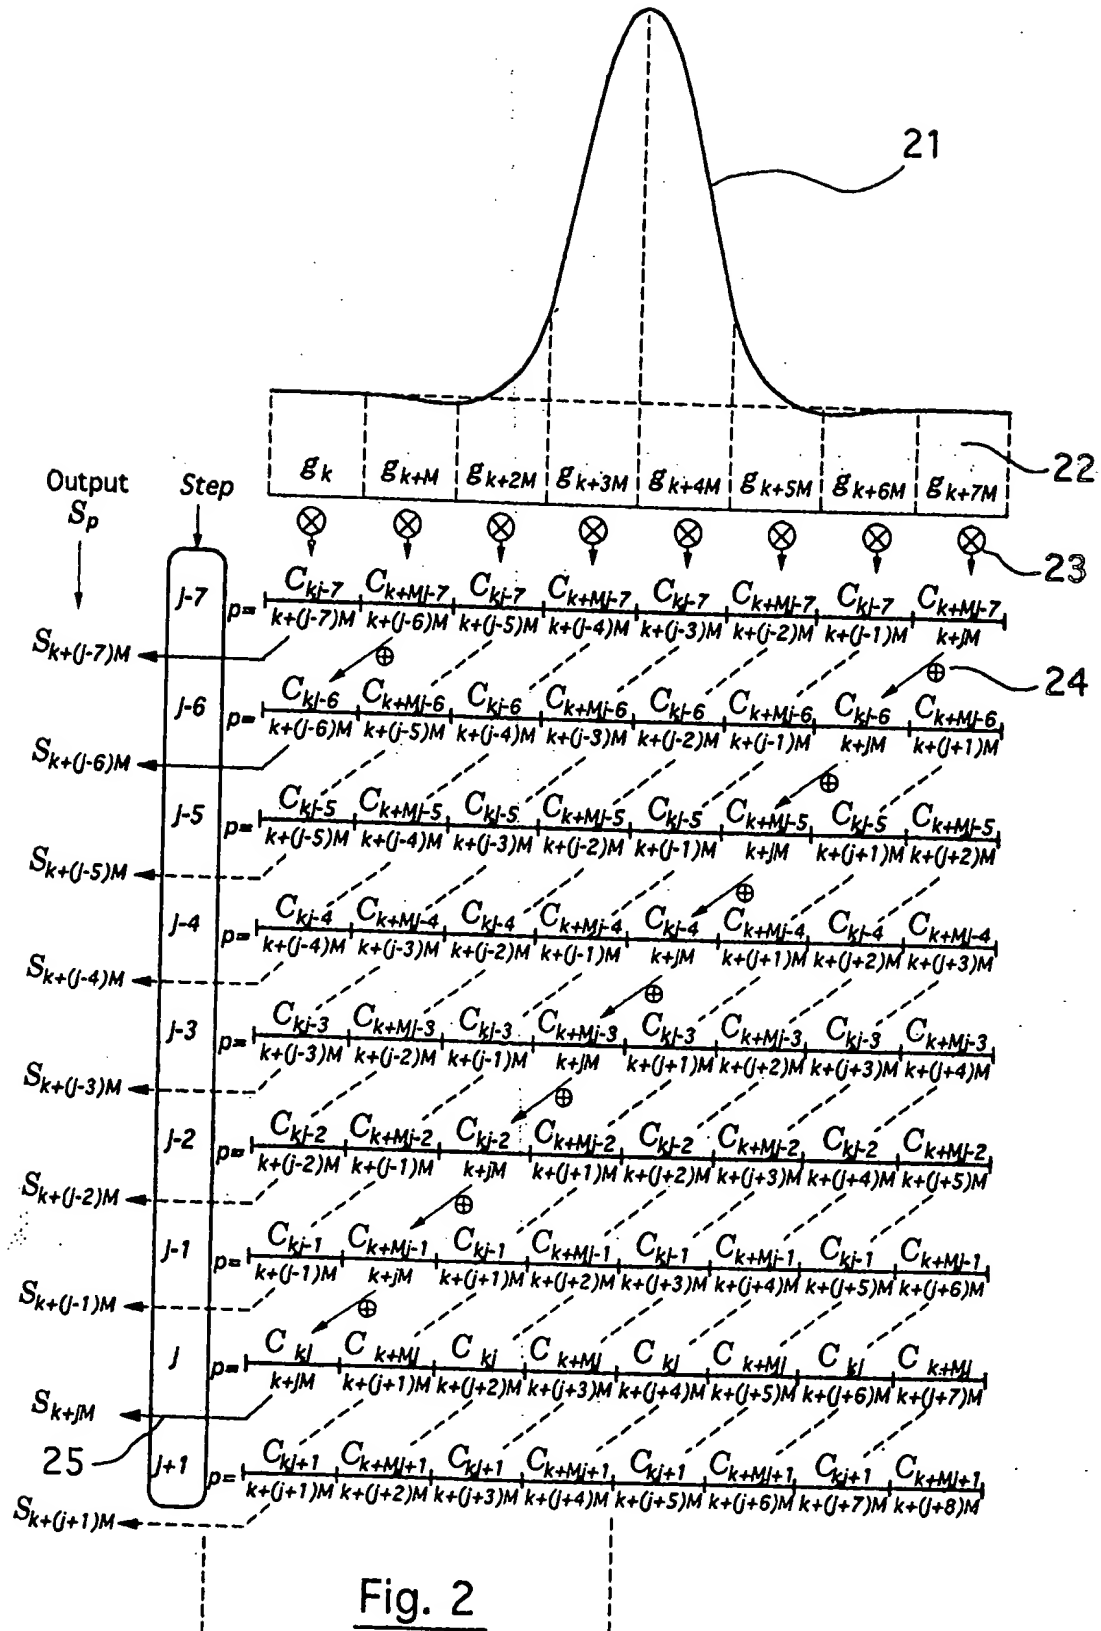 21
g_k g_{k+M} g_{k+2M} g_{k+3M} g_{k+4M} g_{k+5M} g_{k+6M} g_{k+7M} 22
Output Step
S_p
23
j-7 p= C_{kj-7} C_{k+Mj-7} C_{kj-7} C_{k+Mj-7} C_{kj-7} C_{k+Mj-7} C_{kj-7} C_{k+Mj-7}
k+(j-7)M k+(j-6)M k+(j-5)M k+(j-4)M k+(j-3)M k+(j-2)M k+(j-1)M k+jM
S_{k+(j-7)M}
24
j-6 p= C_{kj-6} C_{k+Mj-6} C_{kj-6} C_{k+Mj-6} C_{kj-6} C_{k+Mj-6} C_{kj-6} C_{k+Mj-6}
k+(j-6)M k+(j-5)M k+(j-4)M k+(j-3)M k+(j-2)M k+(j-1)M k+jM k+(j+1)M
S_{k+(j-6)M}
j-5 p= C_{kj-5} C_{k+Mj-5} C_{kj-5} C_{k+Mj-5} C_{kj-5} C_{k+Mj-5} C_{kj-5} C_{k+Mj-5}
k+(j-5)M k+(j-4)M k+(j-3)M k+(j-2)M k+(j-1)M k+jM k+(j+1)M k+(j+2)M
S_{k+(j-5)M}
j-4 p= C_{kj-4} C_{k+Mj-4} C_{kj-4} C_{k+Mj-4} C_{kj-4} C_{k+Mj-4} C_{kj-4} C_{k+Mj-4}
k+(j-4)M k+(j-3)M k+(j-2)M k+(j-1)M k+jM k+(j+1)M k+(j+2)M k+(j+3)M
S_{k+(j-4)M}
j-3 p= C_{kj-3} C_{k+Mj-3} C_{kj-3} C_{k+Mj-3} C_{kj-3} C_{k+Mj-3} C_{kj-3} C_{k+Mj-3}
k+(j-3)M k+(j-2)M k+(j-1)M k+jM k+(j+1)M k+(j+2)M k+(j+3)M k+(j+4)M
S_{k+(j-3)M}
j-2 p= C_{kj-2} C_{k+Mj-2} C_{kj-2} C_{k+Mj-2} C_{kj-2} C_{k+Mj-2} C_{kj-2} C_{k+Mj-2}
k+(j-2)M k+(j-1)M k+jM k+(j+1)M k+(j+2)M k+(j+3)M k+(j+4)M k+(j+5)M
S_{k+(j-2)M}
j-1 p= C_{kj-1} C_{k+Mj-1} C_{kj-1} C_{k+Mj-1} C_{kj-1} C_{k+Mj-1} C_{kj-1} C_{k+Mj-1}
k+(j-1)M k+jM k+(j+1)M k+(j+2)M k+(j+3)M k+(j+4)M k+(j+5)M k+(j+6)M
S_{k+(j-1)M}
j p= C_{kj} C_{k+Mj} C_{kj} C_{k+Mj} C_{kj} C_{k+Mj} C_{kj} C_{k+Mj}
k+jM k+(j+1)M k+(j+2)M k+(j+3)M k+(j+4)M k+(j+5)M k+(j+6)M k+(j+7)M
S_{k+jM}
25
j+1 p= C_{kj+1} C_{k+Mj+1} C_{kj+1} C_{k+Mj+1} C_{kj+1} C_{k+Mj+1} C_{kj+1} C_{k+Mj+1}
k+(j+1)M k+(j+2)M k+(j+3)M k+(j+4)M k+(j+5)M k+(j+6)M k+(j+7)M k+(j+8)M
S_{k+(j+1)M}
Fig. 2